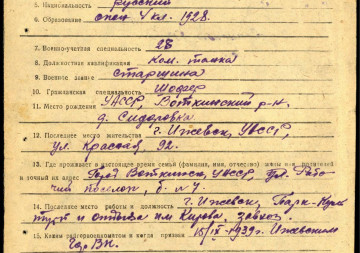 5. Национальность русский
6. Образование спец 4 кл. 1928.
7. Военно-учетная специальность 28
8. Должностная квалификация Ком. танка
9. Военное звание старшина
10. Гражданская специальность Шофер
11. Место рождения УАССР, Воткинский р-н
д. Сидоровка
12. Последнее место жительства г. Ижевск, УАССР,
ул. Красная, 92.
13. Где проживает в настоящее время семья (фамилия, имя, отчество) жены или родителей
и точный их адрес Город Воткинск, УАССР, ул. Рабо-
чий поселок, б. № 4
14. Последнее место работы и должность г. Ижевск, Парк Куль
туры и отдыха им Кирова, завхоз.
15. Каким райгорвоенкоматом и когда призван 15/IV-1939 г. Ижевским
Гор ВК.